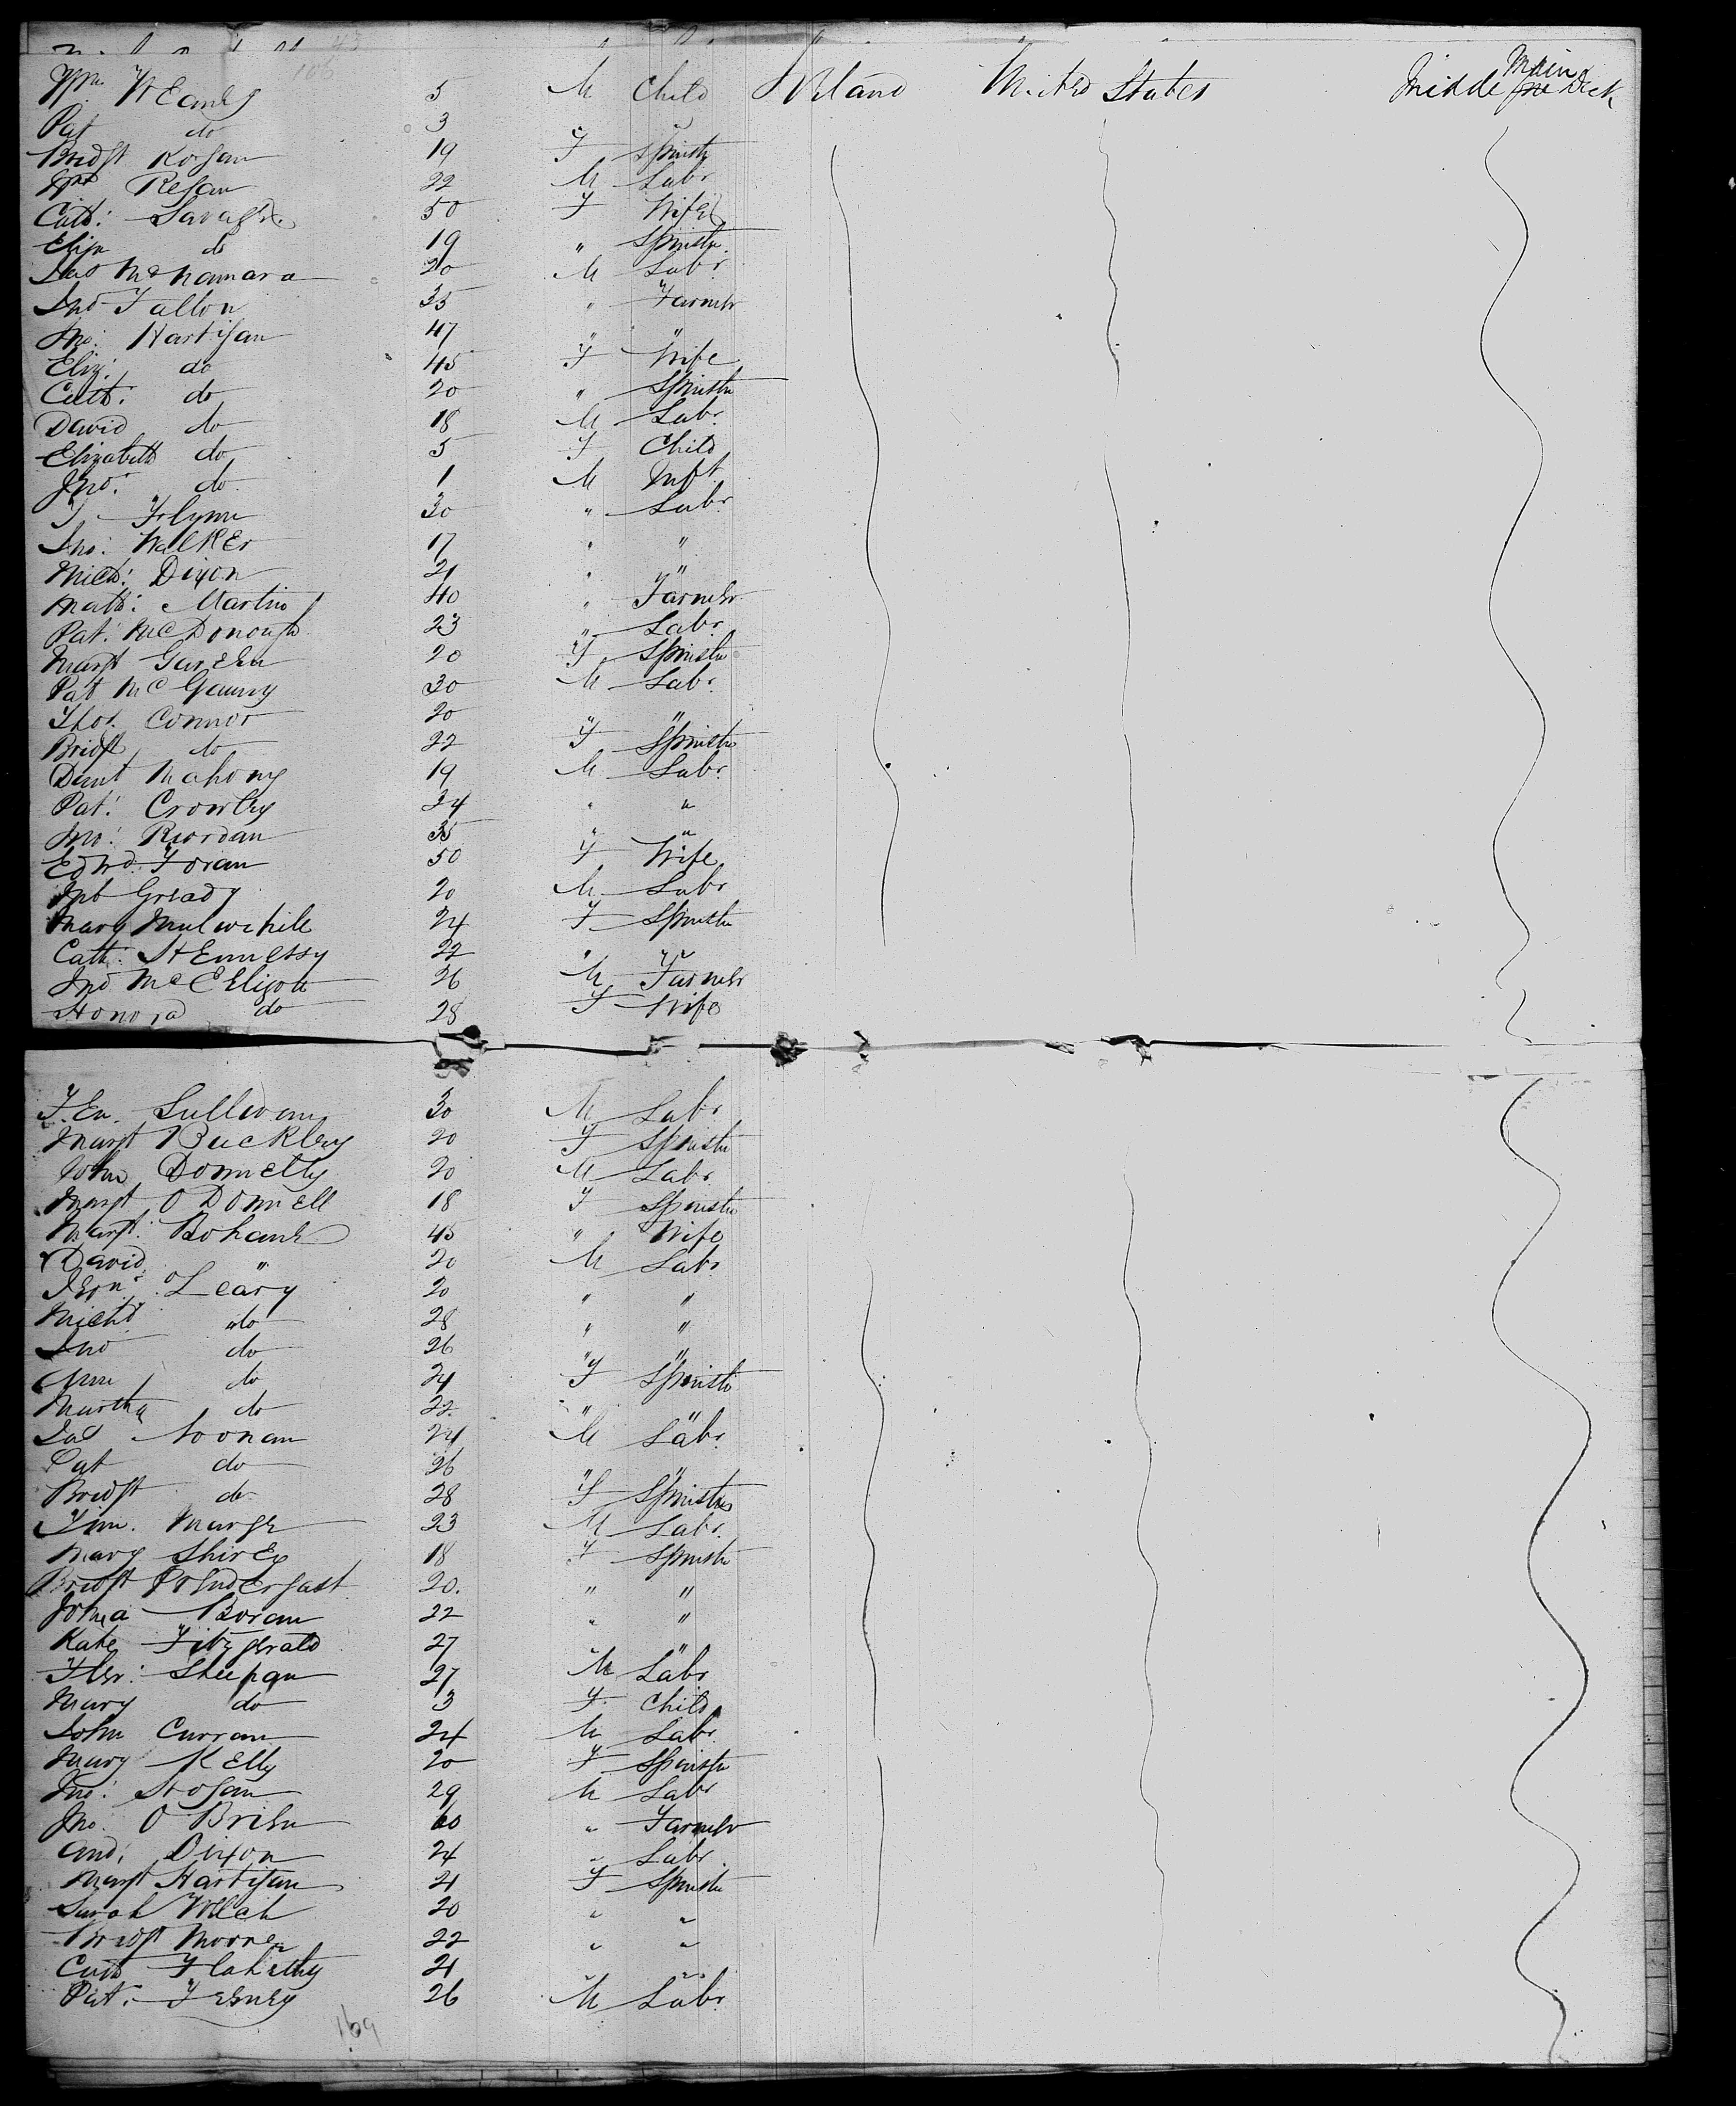 106
Wm Heanly 5 M Child Ireland United States Middle Main Deck
Pat do 3 "
Bridgt Rogan 19 F Spinstr
Regan 22 M Labr
Cath: Savage 50 F Wife
Eliza do 19 " Spinstr
Jas McNamara 20 M Labr
Jno Fallon 35 " Farmer
Jno: Hartigan 47 " "
Eliz: do 45 F Wife
Cath: do 20 " Spinstr
David do 18 M Labr
Elizabeth do 5 F Child
Jno: do 1 M Inft
Flynn 30 " Labr
Jno: Walker 17 " "
Mich: Dixon 21 " "
Matt: Martin 40 " Farmer
Pat: McDonough 23 " Labr
Margt 20 F Spinstr
Pat McGauny 30 M Labr
Thos. Connor 20 " "
Bridgt do 22 F Spinstr
Danl Mahony 19 M Labr
Pat: Crowley 24 " "
Jno: Riordan 35 " "
Edwd. Foran 50 F Wife
Gready 20 M Labr
Mary Mulwihill 24 F Spinstr
Cath: Hennessy 22 " "
Jno McElligott 26 M Farmer
Honora do 28 F Wife
Sullivan 30 M Labr
Margt Buckley 20 F Spinstr
John Donnelly 20 M Labr
Margt O Donnell 18 F Spinstr
Margt: 45 " Wife
David " 20 M Labr
O'Leary 20 " "
Michl do 28 " "
Jno do 26 " "
Ann do 24 F Spinstr
Martha do 22 " "
Noonan 24 M Labr
Pat do 26 " "
Bridgt do 28 F Spinstr
Tim. 23 M Labr
Mary 18 F Spinstr
Bridgt Prendergast 20. " "
Boran 22 " "
Kate Fitzgerald 27 " "
Sheehan 27 M Labr
Mary do 3 F Child
John Curran 24 M Labr
Mary Kelly 20 F Spinstr
Jno: Hogan 29 M Labr
Jno. O'Brien 60 " Farmer
And: Dixon 24 " Labr
Margt Hartigan 21 F Spinstr
Sarah Welch 20 " "
Bridgt Moore 22 " "
Cath Flaherthy 21 " "
Pat: Feeney 26 M Labr
169